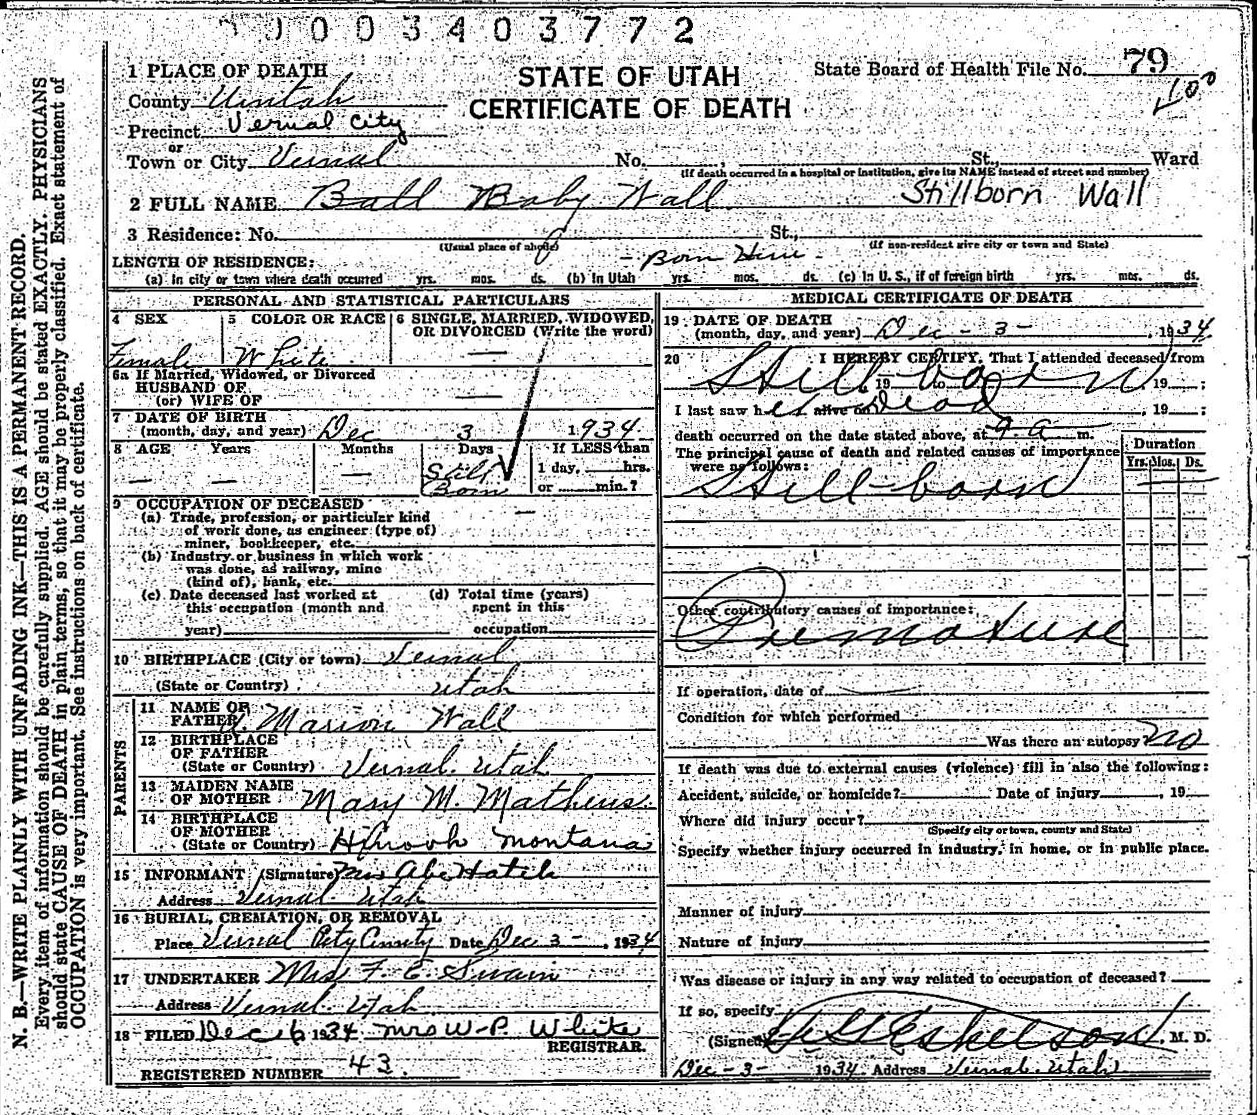 0 0 3 4 0 3 7 7 2
1 PLACE OF DEATH
STATE OF UTAH
CERTIFICATE OF DEATH
State Board of Health File No. 79
100
County Uintah
Precinct Vernal City
or
Town or City Vernal No. , St., Ward
(If death occurred in a hospital or institution, give its NAME instead of street and number)
2 FULL NAME Ball Baby Wall Stillborn Wall
3 Residence: No. St.,
(Usual place of abode) (If non-resident give city or town and State)
LENGTH OF RESIDENCE: - Born Here -
(a) In city or town where death occurred yrs. mos. ds. (b) In Utah yrs. mos. ds. (c) In U. S., if of foreign birth yrs. mos. ds.
PERSONAL AND STATISTICAL PARTICULARS
4 SEX 5 COLOR OR RACE 6 SINGLE, MARRIED, WIDOWED, OR DIVORCED (Write the word)
Female White —
6a If Married, Widowed, or Divorced
HUSBAND OF
(or) WIFE OF —
7 DATE OF BIRTH
(month, day, and year) Dec 3 1934
8 AGE Years Months Days If LESS than
— — — Still Born 1 day, hrs.
or min.?
9 OCCUPATION OF DECEASED
(a) Trade, profession, or particular kind
of work done, as engineer (type of)
miner, bookkeeper, etc. —
(b) Industry or business in which work
was done, as railway, mine
(kind of), bank, etc.
(c) Date deceased last worked at (d) Total time (years)
this occupation (month and spent in this
year) occupation
10 BIRTHPLACE (City or town) Vernal
(State or Country) Utah
PARENTS
11 NAME OF
FATHER Marion Wall
12 BIRTHPLACE
OF FATHER
(State or Country) Vernal Utah
13 MAIDEN NAME
OF MOTHER Mary M. Matheus
14 BIRTHPLACE
OF MOTHER
(State or Country) Montana
15 INFORMANT (Signature) Mrs Abe Hatch
Address Vernal Utah
16 BURIAL, CREMATION, OR REMOVAL
Place Vernal City Date Dec 3 - , 1934
17 UNDERTAKER Mrs F. E. Swain
Address Vernal Utah
18 FILED Dec 6 1934 Mrs W. P. White
REGISTRAR.
REGISTERED NUMBER 43.
MEDICAL CERTIFICATE OF DEATH
19 DATE OF DEATH
(month, day, and year) Dec - 3 - , 1934
20 I HEREBY CERTIFY, That I attended deceased from
Still born 19 to 19 ;
I last saw her alive on Dead , 19 ;
death occurred on the date stated above, at 9 a m.
The principal cause of death and related causes of importance
were as follows:
Duration
Yrs. Mos. Ds.
Still-born
Other contributory causes of importance:
Premature
If operation, date of
Condition for which performed
Was there an autopsy no
If death was due to external causes (violence) fill in also the following:
Accident, suicide, or homicide? Date of injury , 19
Where did injury occur?
(Specify city or town, county and State)
Specify whether injury occurred in industry, in home, or in public place.
Manner of injury
Nature of injury
Was disease or injury in any way related to occupation of deceased?
If so, specify
(Signed) Eskelson, M. D.
Dec - 3 - 1934 Address Vernal Utah
N. B.—WRITE PLAINLY WITH UNFADING INK—THIS IS A PERMANENT RECORD.
Every item of information should be carefully supplied. AGE should be stated EXACTLY. PHYSICIANS
should state CAUSE OF DEATH in plain terms, so that it may be properly classified. Exact statement of
OCCUPATION is very important. See instructions on back of certificate.